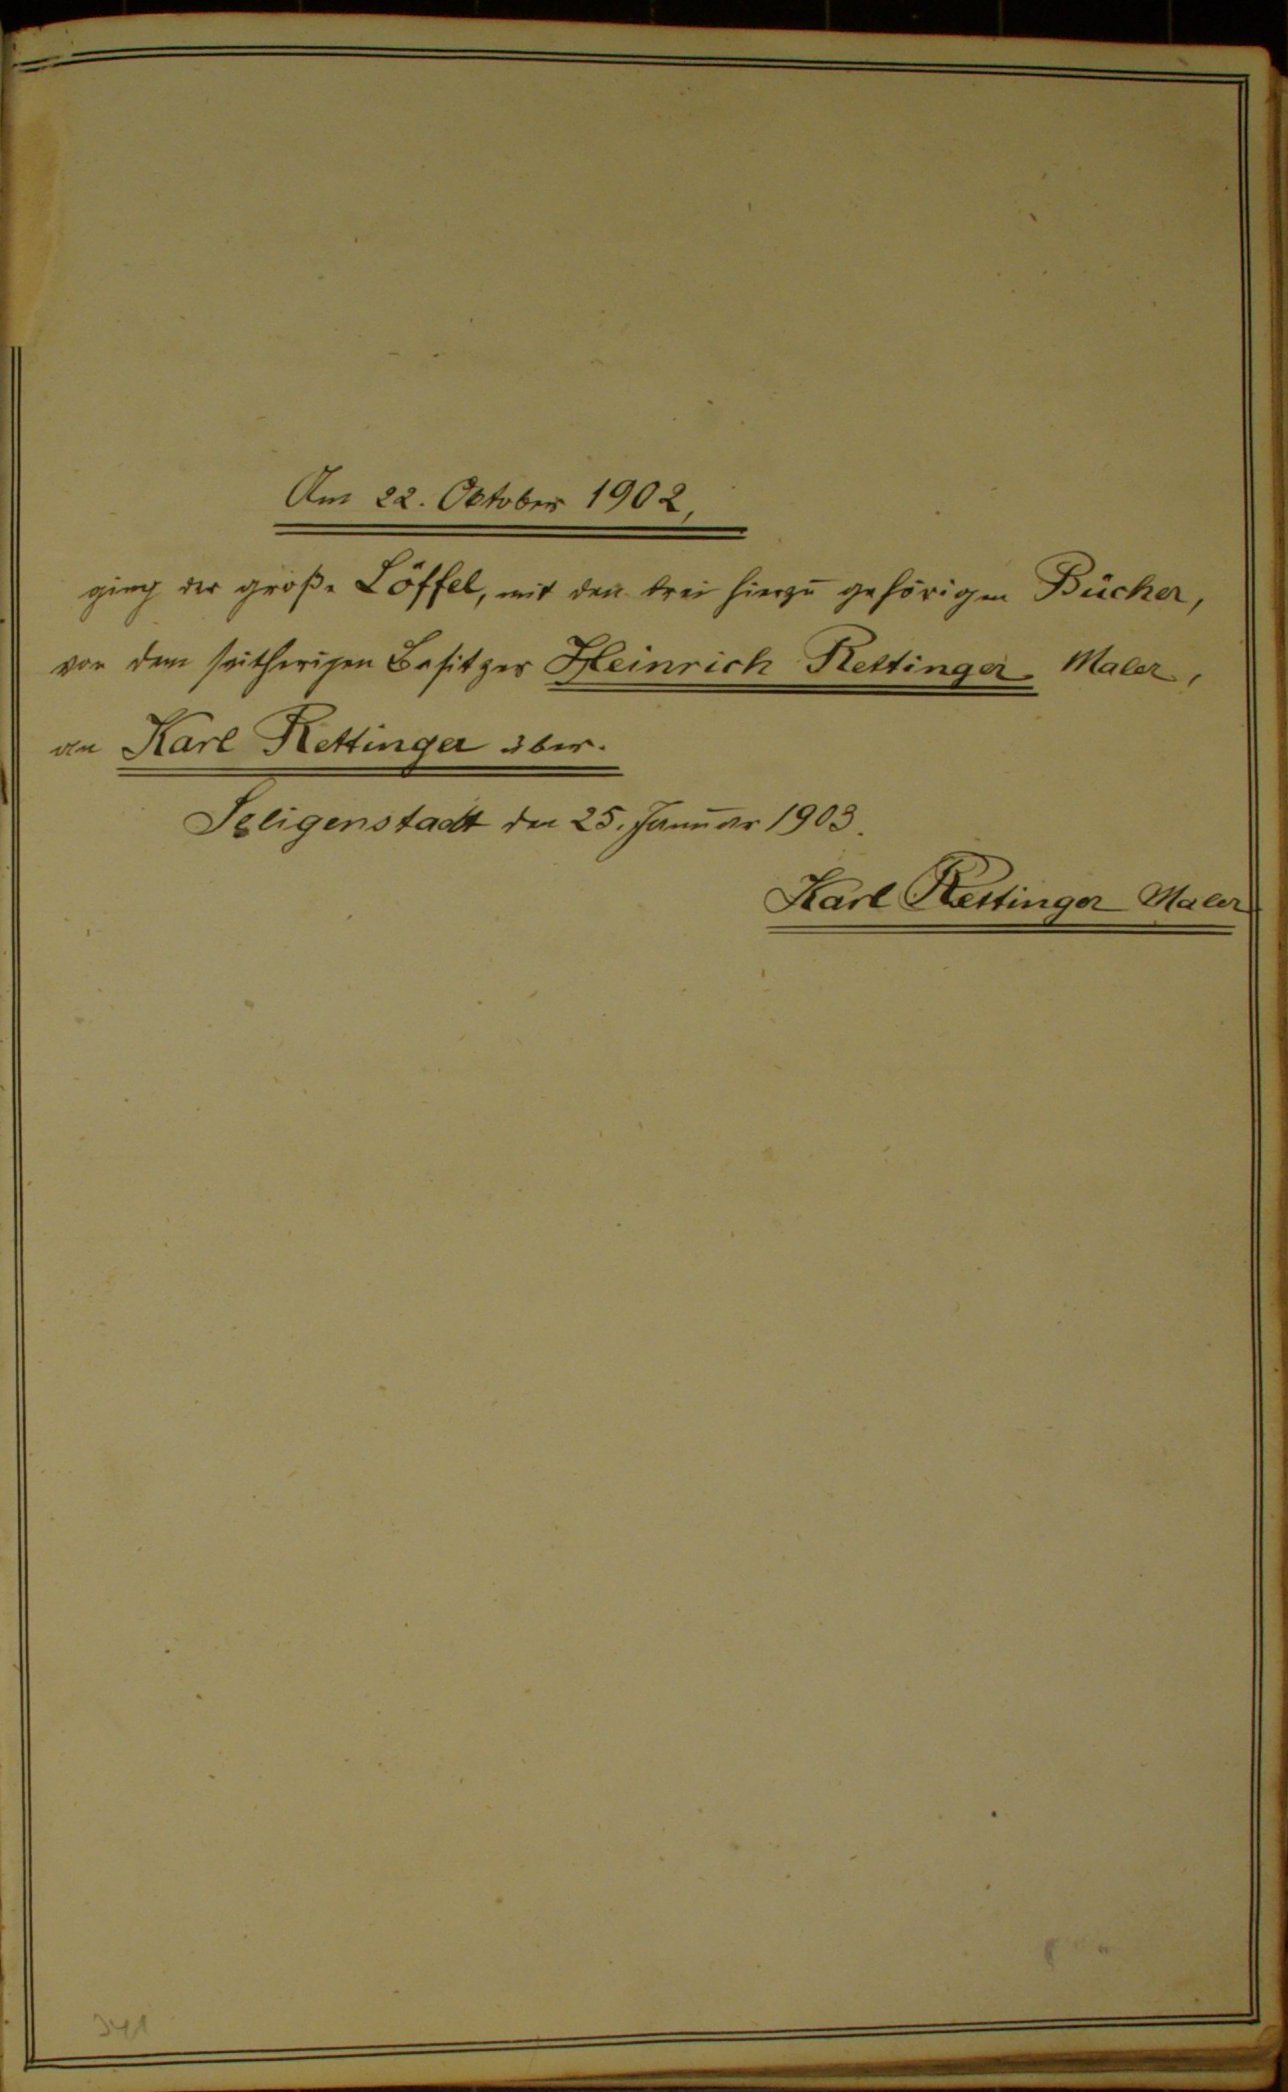 Am 22. Oktober 1902,
ging der große Löffel, mit den drei hierzu gehörigen Bücher,
von dem seitherigen Besitzer Heinrich Rettinger Maler,
an Karl Rettinger über.
Seligenstadt den 25. Januar 1903.
Karl Rettinger Maler
341